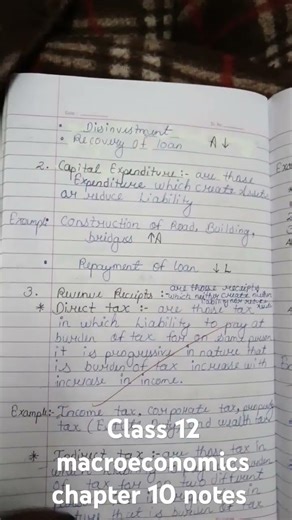 Date
• Disinvestment
• Recovery of loan A↓
2. Capital Expenditure :- are those
Expenditure which create Assets
or reduce Liability
Example • Construction of Road, Building,
bridges ↑A
• Repayment of loan ↓L
3. Revenue Receipts :- are those receipts
which neither create
liability nor reduce
* Direct tax :- are those tax
in which Liability to pay at
burden of tax for on same person
it is progressive in nature that
is burden of tax increase with
increase in income.
Example:- Income tax, corporate tax,
tax and wealth tax
* Indirect tax :- are those tax in
which
of tax on two different
is burden of tax
Class 12
macroeconomics
chapter 10 notes